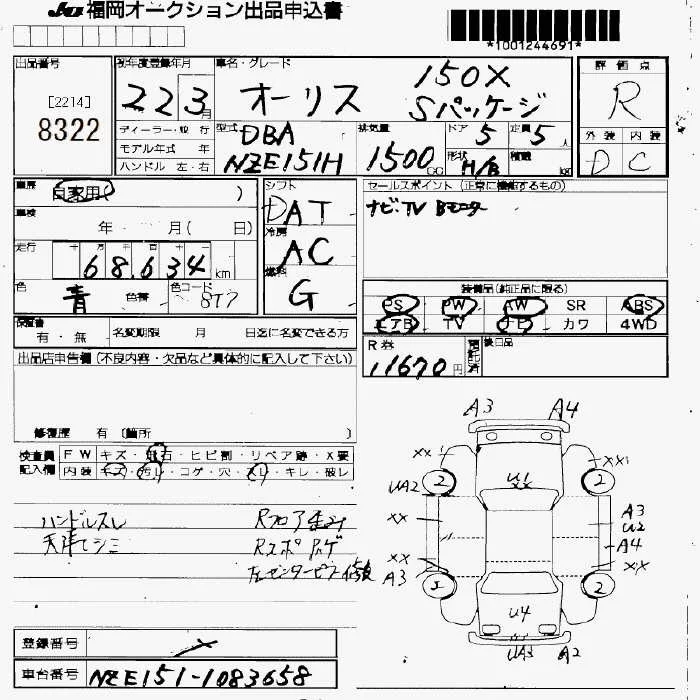 JU 福岡オークション出品申込書
*1001244691*
出品番号
[2214]
8322
初年度登録年月
22 3月
車名・グレード
オーリス 150X
Sパッケージ
評価点
R
外装 内装
D C
ディーラー・並行
モデル年式 年
ハンドル 左・右
型式
DBA
NZE151H
排気量
1500 CC
ドア 5
定員 5人
形状 H/B
積載 kg
車歴 自家用( )
車検 年 月( 日)
走行 十 万 千 百 十 一
68,634 km
色 青 色替 色コード 8T7
シフト
DAT
冷房
AC
燃料
G
セールスポイント(正常に機能するもの)
ナビ・TV Bモニター
装備品(純正品に限る)
PS PW AW SR ABS
エアB TV ナビ カワ 4WD
保証書 有・無
名変期限 月 日迄に名変できる方
R券
11670円
預託済
後日品
出品店申告欄(不良内容・欠品など具体的に記入して下さい)
修復歴 有 〔箇所 〕
検査員記入欄
FW キズ・飛石・ヒビ割・リペア跡・X要
内装 キズ・汚れ・コゲ・穴・スレ・キレ・破レ
ハンドルスレ
天張りシミ
Rフロア歪み
登録番号
車台番号 NZE151-1083658
A3 A4
XX XX
2 2
U1
XX
UA2
XX
A3
U2
A4
XX XX
A3
2
U4
UA3 A2